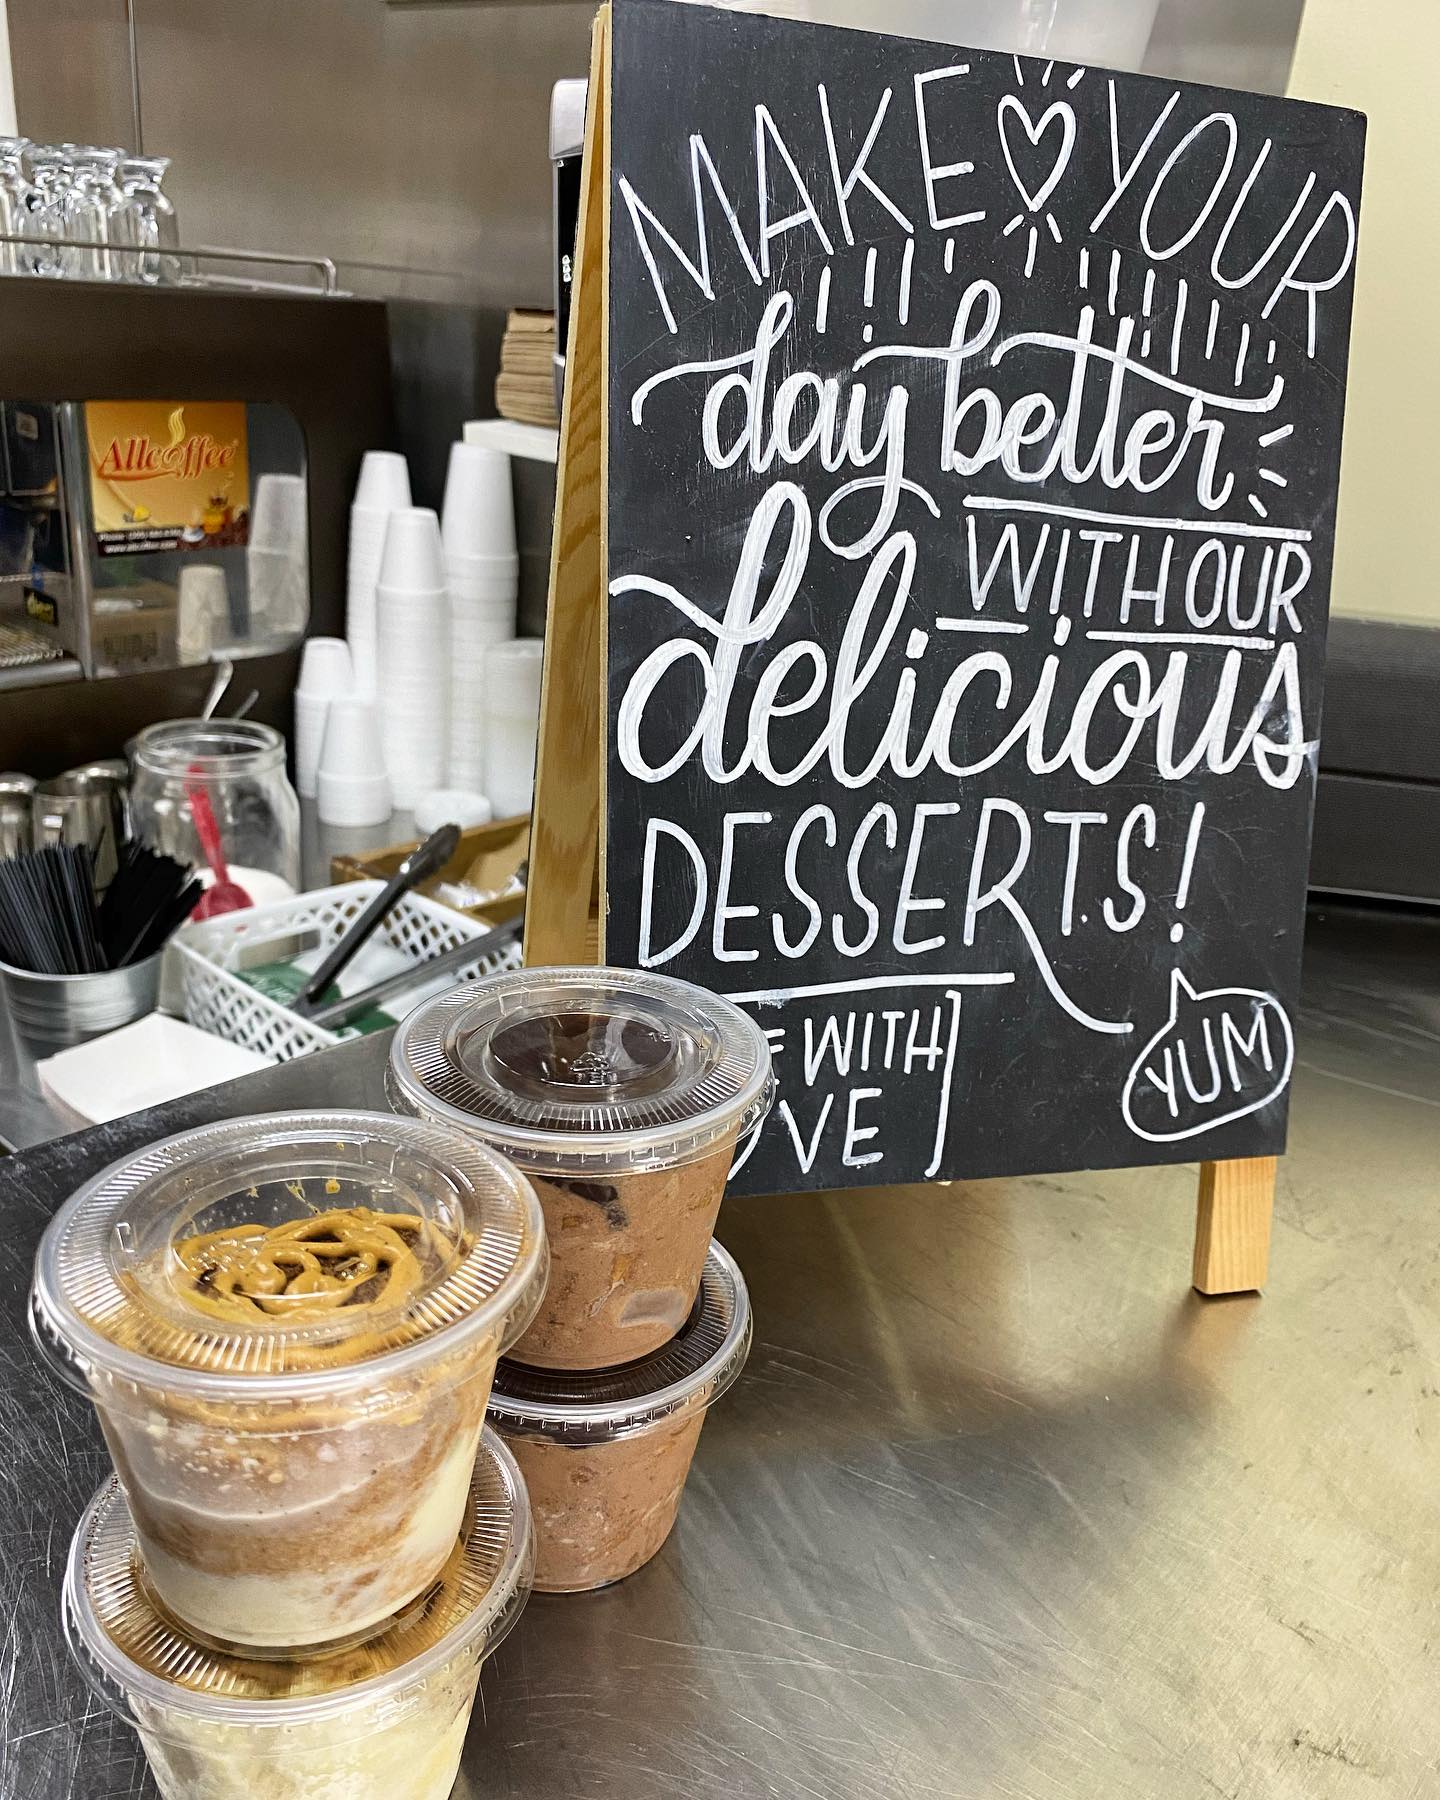 MAKE YOUR
day better
WITH OUR
delicious
DESSERTS!
E WITH
VE]
YUM
Allcoffee